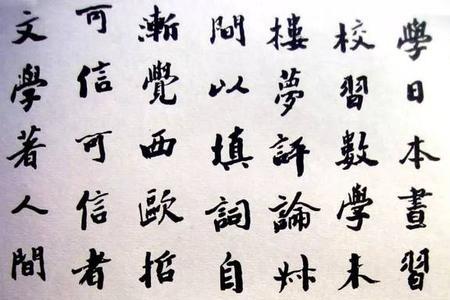 學日本晝習
校習數學未
樓夢評論
間以填詞自
漸覺西歐哲
可信可信者
文學著人間